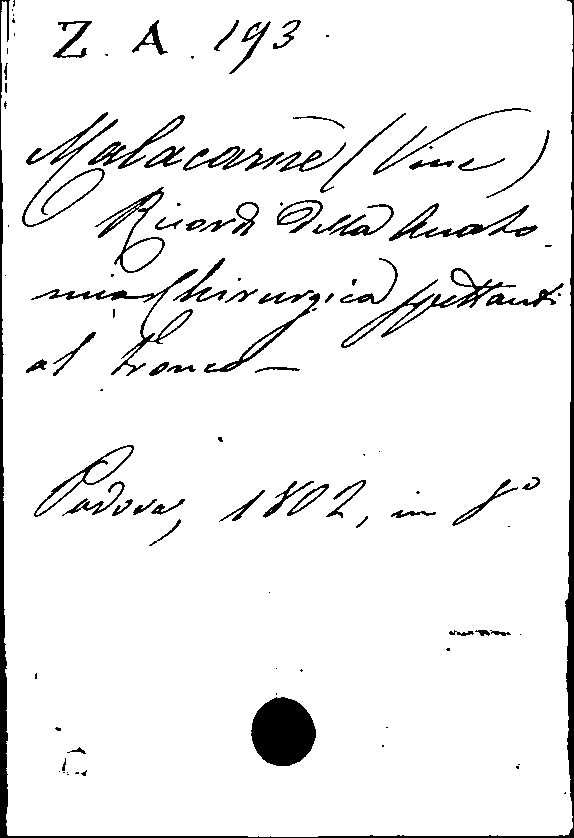 Z. A. 193
Malacarne (Vinc)
Ricordi della Anato-
mia Chirurgica spettanti
al tronco —
Padova, 1802, in 8º